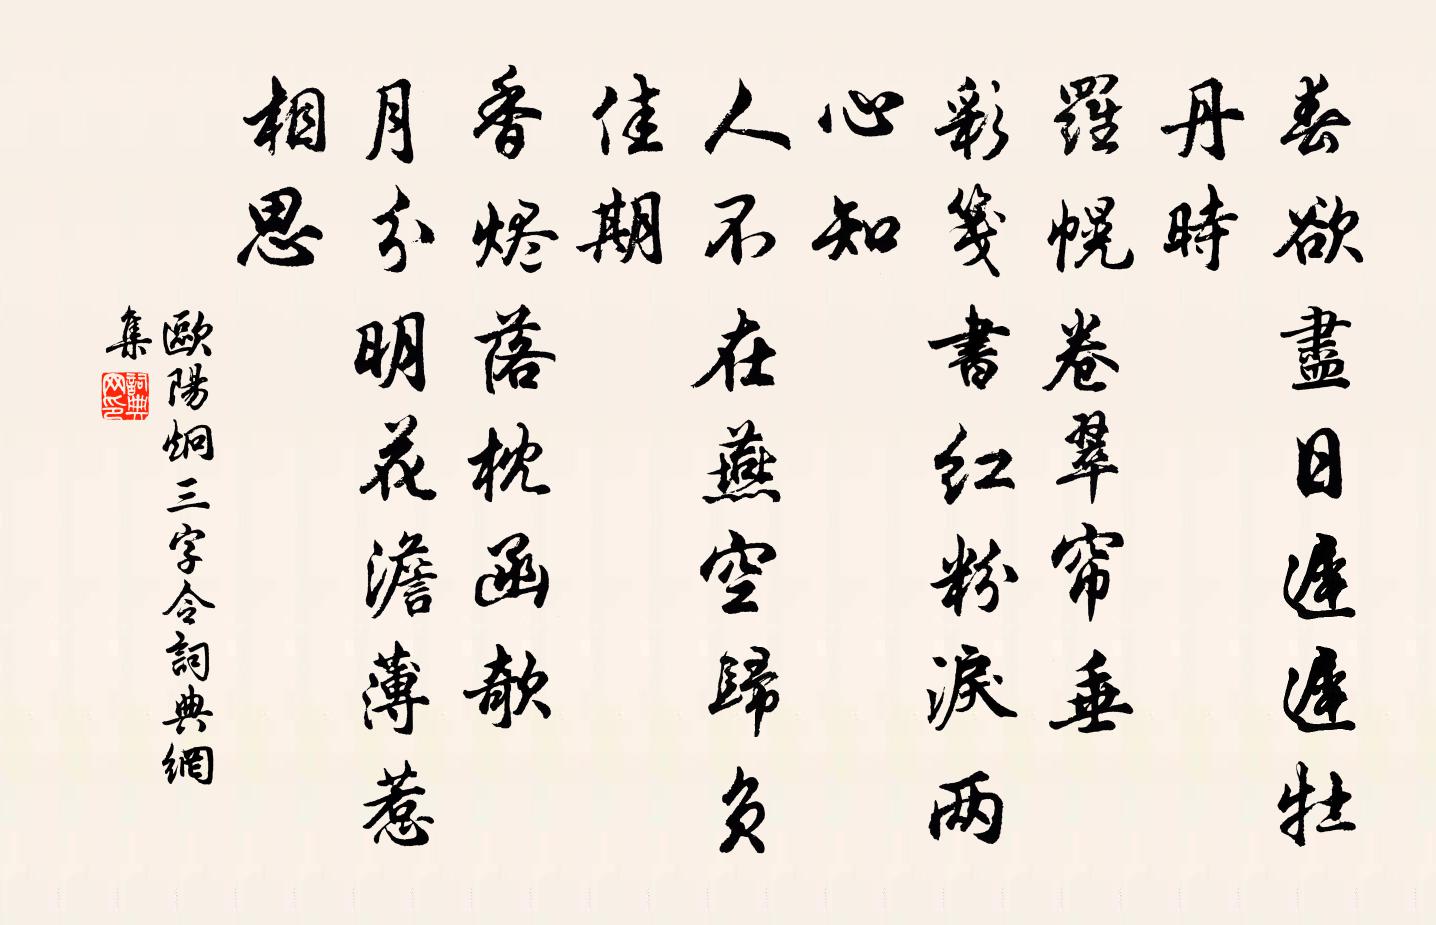 春欲盡日遲遲牡
丹時
羅幌卷翠帘垂
彩箋書红粉淚两
心知
人不在燕空歸负
佳期
香烬落枕函欹
月分明花澹薄惹
相思
歐陽炯三字令詞典網
集
詞典
网印